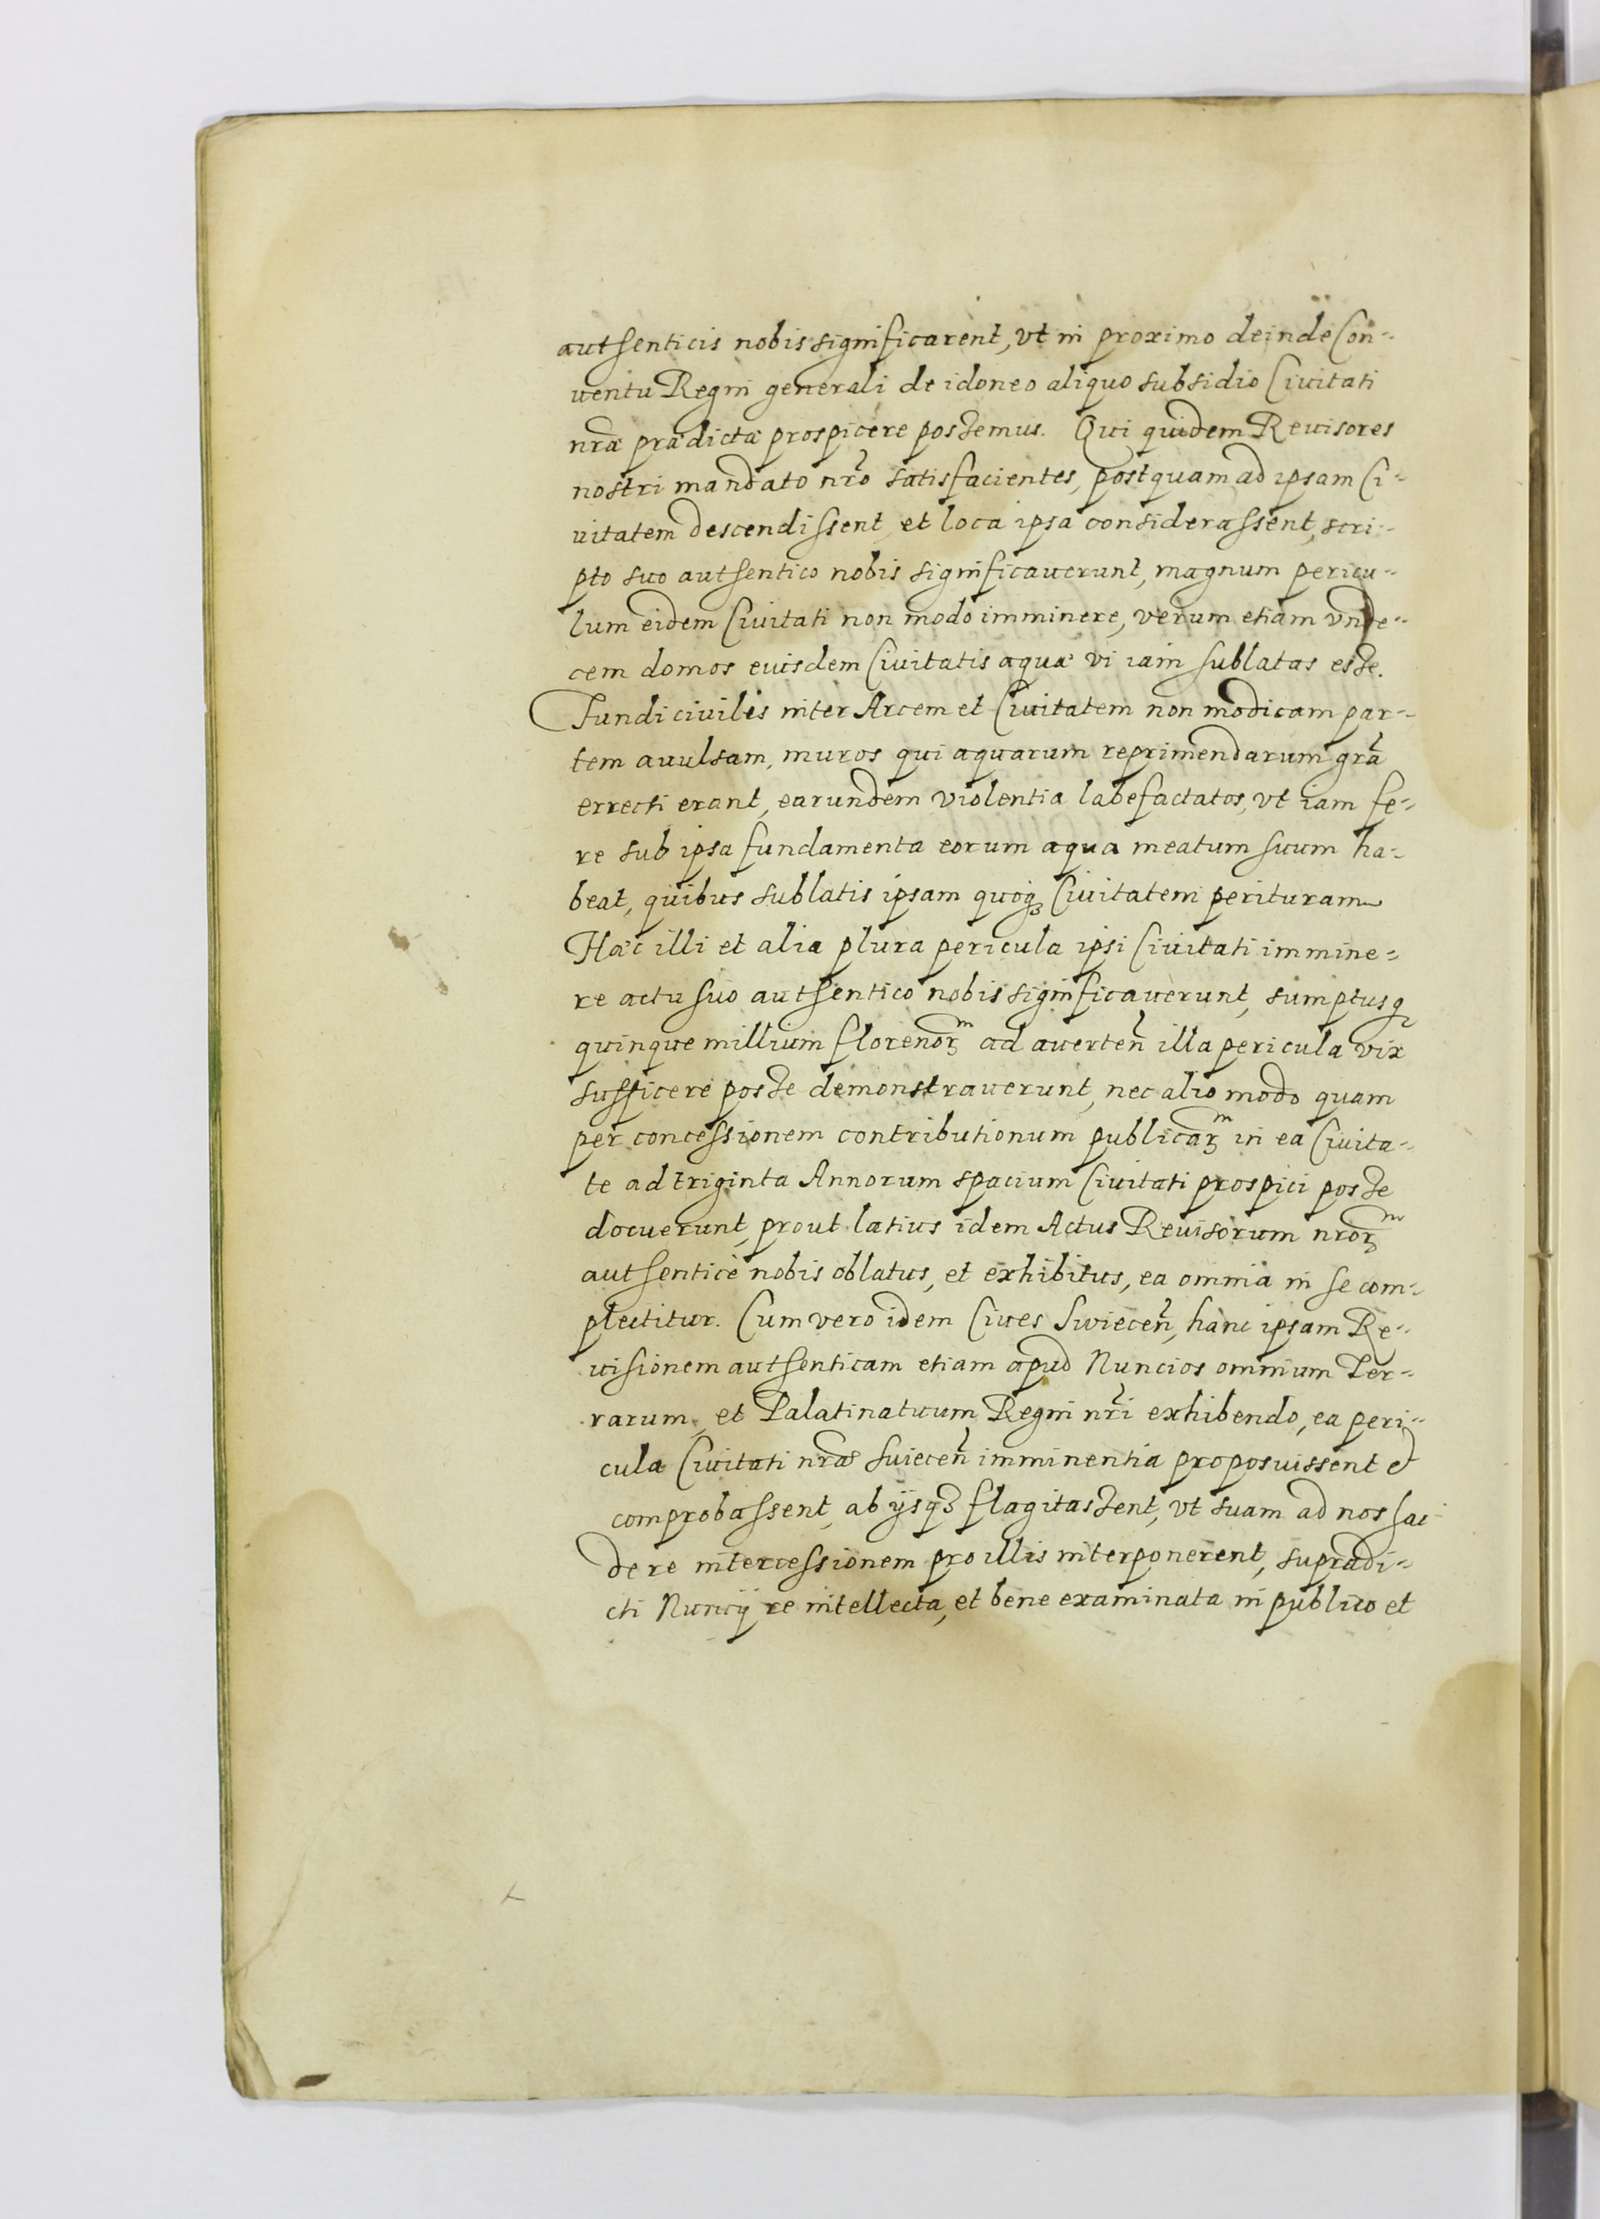 authenticis nobis significarent, vt in proximo deinde Con-
uentu Regni generali de idoneo aliquo subsidio Ciuitati
nræ prædictæ prospicere possemus. Qui quidem Reuisores
nostri mandato nro satisfacientes, postquam ad ipsam Ci-
uitatem descendissent, et loca ipsa considerassent, scri-
pto suo authentico nobis significauerunt, magnum pericu-
lum eidem Ciuitati non modo imminere, verum etiam vnde-
cem domos euisdem Ciuitatis aquæ vi iam sublatas esse.
Fundi ciuilis inter Arcem et Ciuitatem non modicam par-
tem auulsam, muros qui aquarum reprimendarum gra
errecti erant, earundem violentia labefactatos, vt iam fe-
re sub ipsa fundamenta eorum aqua meatum suum ha-
beat, quibus sublatis ipsam quoq3 Ciuitatem perituram
Hæc illi et alia plura pericula ipsi Ciuitati immine-
re actu suo authentico nobis significauerunt, sumptusq
quinque millium florenorm ad auerten illa pericula vix
sufficere posse demonstrauerunt, nec alio modo quam
per concessionem contributionum publicarm in ea Ciuita-
te ad triginta Annorum spacium Ciuitati prospici posse
docuerunt, prout latius idem Actus Reuisorum nrorm
authenticè nobis oblatus, et exhibitus, ea omnia in se com-
plectitur. Cum vero idem Ciues Swiecen, hanc ipsam Re-
uisionem authenticam etiam apud Nuncios omnium Ter-
rarum, et Palatinatuum Regni nri exhibendo, ea peri-
cula Ciuitati nræ Suiecen imminentia proposuissent et
comprobassent, ab ijsq3 flagitassent, vt suam ad nos hac
de re intercessionem pro illis interponerent, supradi-
cti Nuncij re intellecta, et bene examinata in publico et